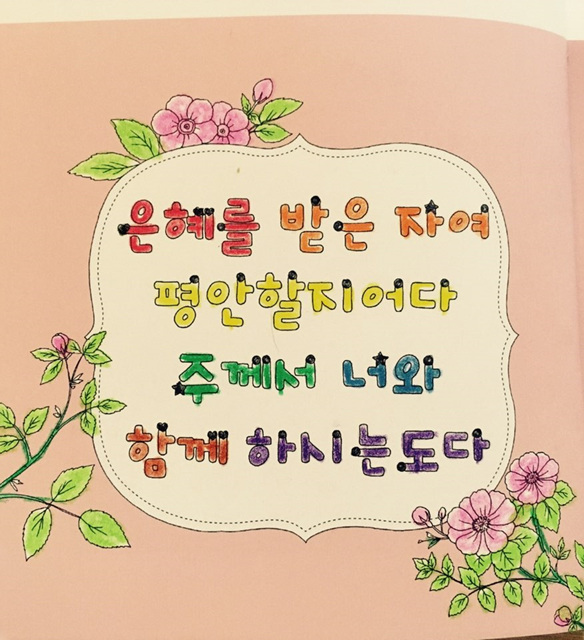 은혜를 받은 자여
평안할지어다
주께서 너와
함께 하시는도다